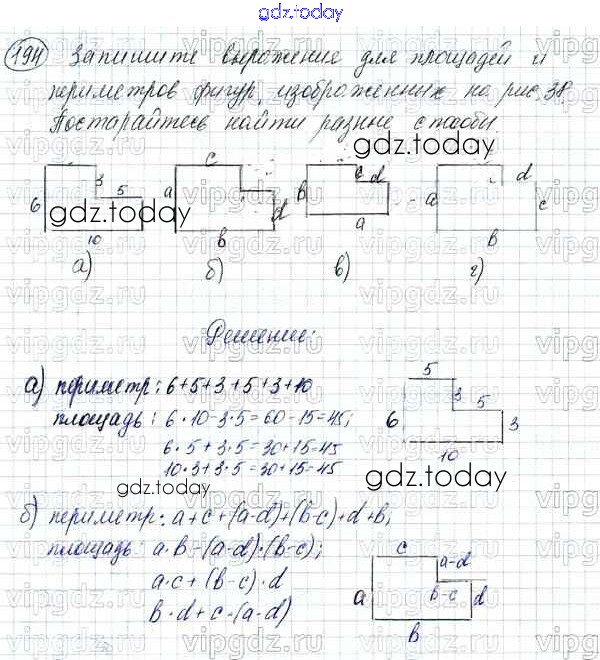 gdz.today
194 Запишите выражение для площадей и
периметров фигур, изображенных на рис. 38.
Постарайтесь найти разные способы
gdz.today
6 3 5 10
а)
a c d b
б)
b c d a
в)
a d c b
г)
gdz.today
Решение:
а) периметр: 6+5+3+5+3+10
площадь: 6·10-3·5=60-15=45;
6·5+3·5=30+15=45
10·3+3·5=30+15=45
5 3 5 6 3 10
gdz.today
gdz.today
б) периметр: a+c+(a-d)+(b-c)+d+b;
площадь: a·b-(a-d)·(b-c);
a·c+(b-c)·d
b·d+c·(a-d)
c a-d b-c a d b